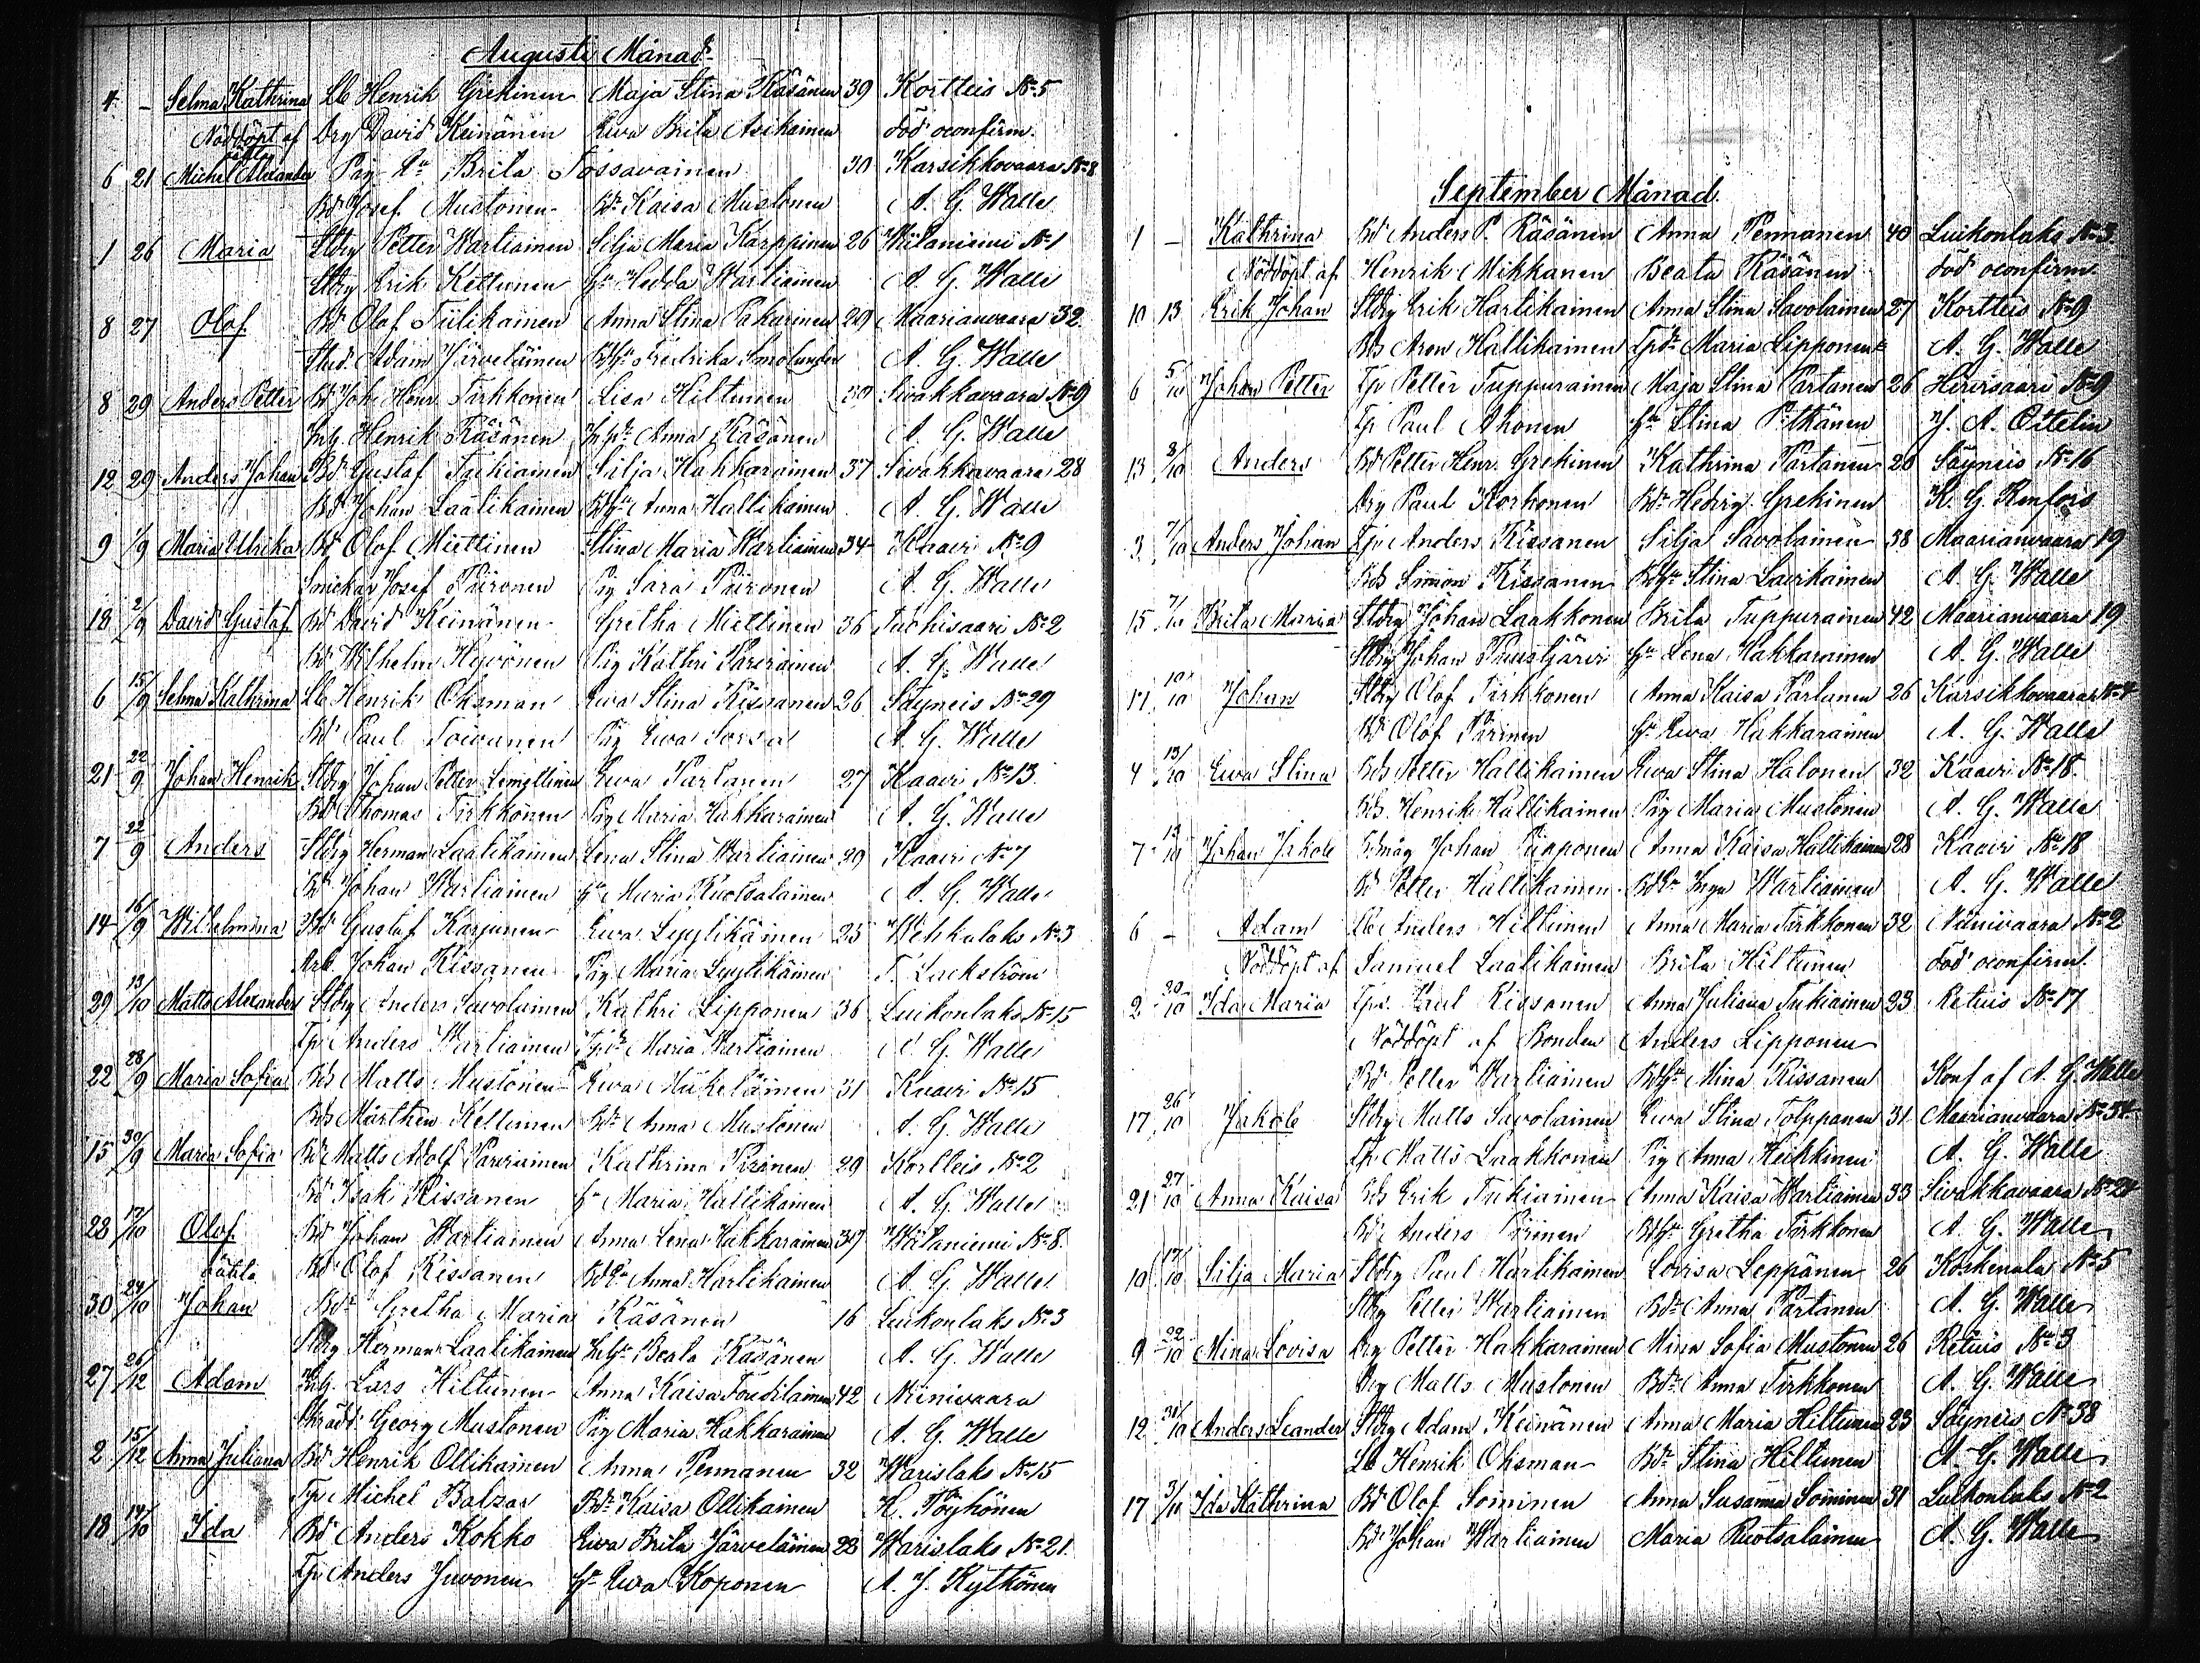 Augusti Månad
4. – Selma Kathrina Lb Henrik Grekinen Maja Stina Räsänen 39 Kortteis No 5
Nöddöpt af Drg David Keinänen Ewa Brita Asikainen död oconfirm.
oäkta
6 21 Michel Alexander Pig Brita Tossavainen 30 Karsikkovaara No 8
Bd Josef Mustonen Bdr Kaisa Mustonen A. G. Walle
1 26 Maria Stdrg Petter Wartiainen Silja Maria Karppinen 26 Wiitaniemi No 1
Stdrg Erik Kettunen Hu Hedda Wartiainen A. G. Walle
8 27 Olof Bd Olof Tiilikainen Anna Stina Pakarinen 29 Maarianvaara 32.
Stud. Adam Järveläinen Fredrika Smolander A. G. Walle
8 29 Anders Petter Bd Joh. Henr. Tirkkonen Lisa Hiltunen 30 Sivakkavaara No 9
Inh. Henrik Räsänen Anna Räsänen A. G. Walle
12 29 Anders Johan Bd Gustaf Tukiainen Silja Hakkarainen 37 Sivakkavaara 28
Bd Johan Laatikainen Bdhu Anna Hallikainen A. G. Walle
9 1/9 Maria Ulrika Bd Olof Miettinen Stina Maria Wartiainen 34 Kaavi No 9
Snickar Josef Piironen Pig Sara Piironen A. G. Walle
18 2/9 David Gustaf Bd David Keinänen Gretha Miettinen 36 No 2
Bd Wilhelm Hyvönen Pig Kathri Parviainen A. G. Walle
6 15/9 Selma Kathrina Lb Henrik Ohsman Ewa Stina Kissanen 26 Säyneis No 29
Bd Paul Toivanen Pig Ewa Sorsa A. G. Walle
21 22/9 Johan Henrik Stdrg Johan Petter Ewa Partanen 27 Kaavi No 13.
Bd Thomas Tirkkonen Pig Maria Hakkarainen A. G. Walle
7 22/9 Anders Stdrg Herman Laatikainen Lena Stina Wartiainen 29 Kaavi No 7
Bd Johan Wartiainen Hu Maria Ruotsalainen A. G. Walle
14 16/9 Wilhelmina Bd Gustaf Karjunen Ewa Lyytikäinen 25 Wehkalaks No 3
Arb. Johan Kissanen Pig Maria Lyytikäinen F. Lackström
29 13/10 Matts Alexander Stdrg Anders Savolainen Kathri Lipponen 36 Luikonlaks No 15
Tp Anders Wartiainen Maria Wartiainen A. G. Walle
22 28/9 Maria Sofia Bds Matts Mustonen Ewa Miikeläinen 31 Kaavi No 15
Bds Mårthen Kettunen Bdr Anna Mustonen A. G. Walle
15 30/9 Maria Sofia Bd Matts Adolf Parviainen Kathrina Piironen 29 Kortteis No 2
Bd Isak Kissanen Hu Maria Hallikainen A. G. Walle
28 17/10 Olof Bd Johan Wartiainen Anna Lena Hakkarainen 37 Wiitaniemi No 8.
oäkta Bd Olof Kissanen Anna Hartikainen A. G. Walle
30 24/10 Johan Bdr Gretha Maria Räsänen 16 Luikonlaks No 3
Stdrg Herman Laatikainen Beata Räsänen A. G. Walle
27 26/12 Adam Inh. Lars Hiltunen Anna Kaisa 42 Niinivaara
Skrädd. Georg Mustonen Pig Maria Hakkarainen A. G. Walle
2 15/12 Anna Juliana Bd Henrik Ollikainen Anna Pennanen 32 Warislaks No 15
Tp Michel Balzar Bdr Kaisa Ollikainen K. Pöyhönen
18 14/10 Ida Bd Anders Kokko Ewa Brita Järveläinen 22 Warislaks No 21.
Tp Anders Juvonen Hu Ewa Koponen A. J. Kyttönen
September Månad.
1 – Kathrina Bd Anders P. Räsänen Anna Pennanen 40 Luikonlaks No 3.
Nöddöpt af Henrik Mikkanen Beata Räsänen död oconfirm.
10 13 Erik Johan Stdrg Erik Hartikainen Anna Stina Savolainen 27 Kortteis No 9
Bds Aron Hallikainen Maria Lipponen A. G. Walle
6 5/10 Johan Petter Tp Petter Tuppurainen Maja Stina Partanen 26 Hirvisaari No 9
Tp Paul Ahonen Hu Stina Pitkänen J. A. Öttelin
13 8/10 Anders Bd Petter Henr. Grekinen Kathrina Partanen 28 Säyneis No 16
Drg Paul Korhonen Bdr Hedvig Grekinen K. G. Renfors
3 7/10 Anders Johan Tp Anders Kissanen Silja Savolainen 38 Maarianvaara 19
Bds Simon Kissanen Bdhu Stina Laurikainen A. G. Walle
15 7/10 Brita Maria Stdrg Johan Laakkonen Brita Tuppurainen 42 Maarianvaara 19
Stdrg Johan Puustjärvi Hu Lena Hakkarainen A. G. Walle
17 10/10 Johan Stdrg Olof Tirkkonen Anna Kaisa Partanen 26 Karsikkovaara No 4
Bd Olof Hu Ewa Hakkarainen A. G. Walle
4 13/10 Ewa Stina Bds Petter Hallikainen Ewa Stina Halonen 32 Kaavi No 18.
Bds. Henrik Hallikainen Pig Maria Mustonen A. G. Walle
7 13/10 Johan Jakob Bdmåg Johan Piipponen Anna Kaisa Hallikainen 28 Kaavi No 18
Bd Petter Hallikainen Inga Wartiainen A. G. Walle
6 – Adam Lb Anders Hiltunen Anna Maria Tirkkonen 32 Niinivaara No 2
Nöddöpt af Samuel Laatikainen Brita Hiltunen död oconfirm.
2 20/10 Ida Maria Tps. Paul Kissanen Anna Juliana Tukiainen 23 Retuis No 17
Nöddöpt af Bonden Anders Lipponen
Bd Petter Wartiainen Bdhu Mina Kissanen Konf af A. G. Walle
17 26/10 Jakob Stdrg Matts Savolainen Ewa Stina Tolppanen 31 Maarianvaara No 34
Tp Matts Laakkonen Pig Anna Heikkinen A. G. Walle
21 27/10 Anna Kaisa Bds Erik Tukiainen Anna Kaisa Wartiainen 33 Sivakkavaara No 24
Bd Anders Bdhu Gretha Tirkkonen A. G. Walle
10 17/10 Silja Maria Stdrg Paul Hartikainen Lovisa Leppänen 26 Koskenala No 5
Stdrg Petter Wartiainen Bdr Anna Partanen A. G. Walle
9 22/10 Mina Lovisa Drg Petter Hakkarainen Mina Sofia Mustonen 26 Retuis No 3
Drg Matts Mustonen Bdr Anna Tirkkonen A. G. Walle
12 31/10 Anders Leander Stdrg Adam Keinänen Anna Maria Hiltunen 23 Säyneis No 38
Lb Henrik Ohsman Bdr Stina Hiltunen A. G. Walle
17 3/11 Ida Kathrina Bd Olof Soininen Anna Susanna Soininen 31 Luikonlaks No 2
Bd Johan Wartiainen Maria Ruotsalainen A. G. Walle